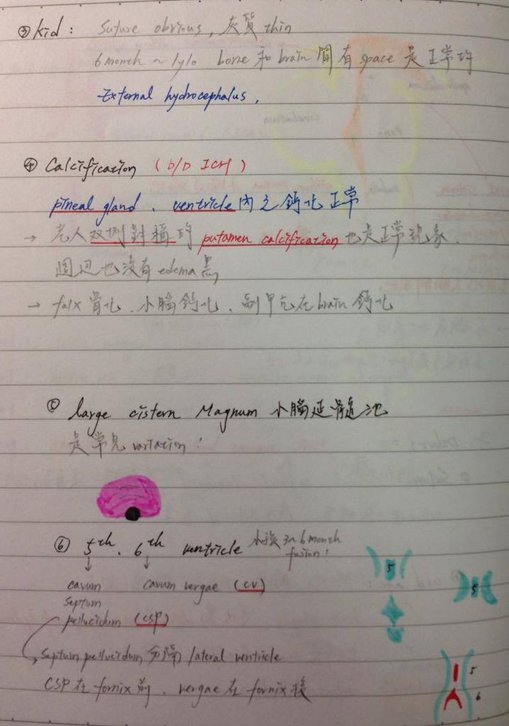 ③ kid : Suture obvious, 灰質 thin
6 month ~ 1y/o bone 和 brain 間有 space 是正常的
External hydrocephalus.
④ Calcification (D/D ICH)
pineal gland、ventricle 內之鈣化正常
→ 老人双側対稱的 putamen calcification 也是正常現象.
周边也沒有 edema
→ falx 骨化、小腦鈣化、副甲亢在 brain 鈣化
⑤ large cistern Magnum 小腦延髓池
是常見 variation!
⑥ 5th. 6th ventricle 小孩 3~6 month fusion!
cavum septum pellucidum (CSP)
cavum vergae (CV)
Septum pellucidum 分隔 lateral ventricle
CSP 在 fornix 前、vergae 在 fornix 後
5
5
5
6